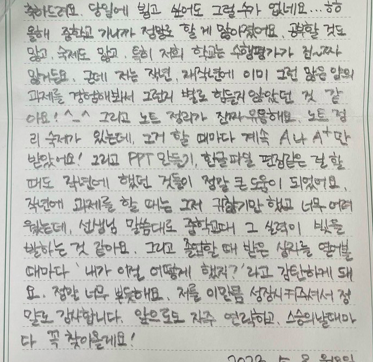 찾아드려요. 당일에 뵙고 싶어도 그럴 수가 없네요...ㅎㅎ
올해 중학교 가니까 정말로 할 게 많아졌어요. 공부할 것도
많고, 숙제도 많고, 특히 저희 학교는 수행평가가 진~짜
많거든요. 근데 저는 작년, 재작년에 이미 그런 많은 양의
과제를 경험해봐서 그런지 별로 힘들지 않았던 것 같
아요! ^_^ 그리고 노트 정리가 진짜 유용해요. 노트 정
리 숙제가 있는데, 그거 할 때마다 계속 A나 A+만
받았어요! 그리고 PPT 만들기, 한글파일 편집같은 걸 할
때도 작년에 했던 것들이 정말 큰 도움이 되었어요.
작년에 과제를 할 때는 그저 귀찮기만 했고 너무 어려
웠는데, 선생님 말씀대로 중학교다 그 실력이 빛을
발하는 것 같아요. 그리고 졸업할 때 받은 상자를 열어볼
때마다 '내가 이걸 어떻게 했지?' 라고 감탄하게 돼
요. 정말 너무 뿌듯해요. 저를 이만큼 성장시켜주셔서 정
말로 감사합니다. 앞으로도 자주 연락하고, 스승의날때마
다 꼭 찾아올게요!